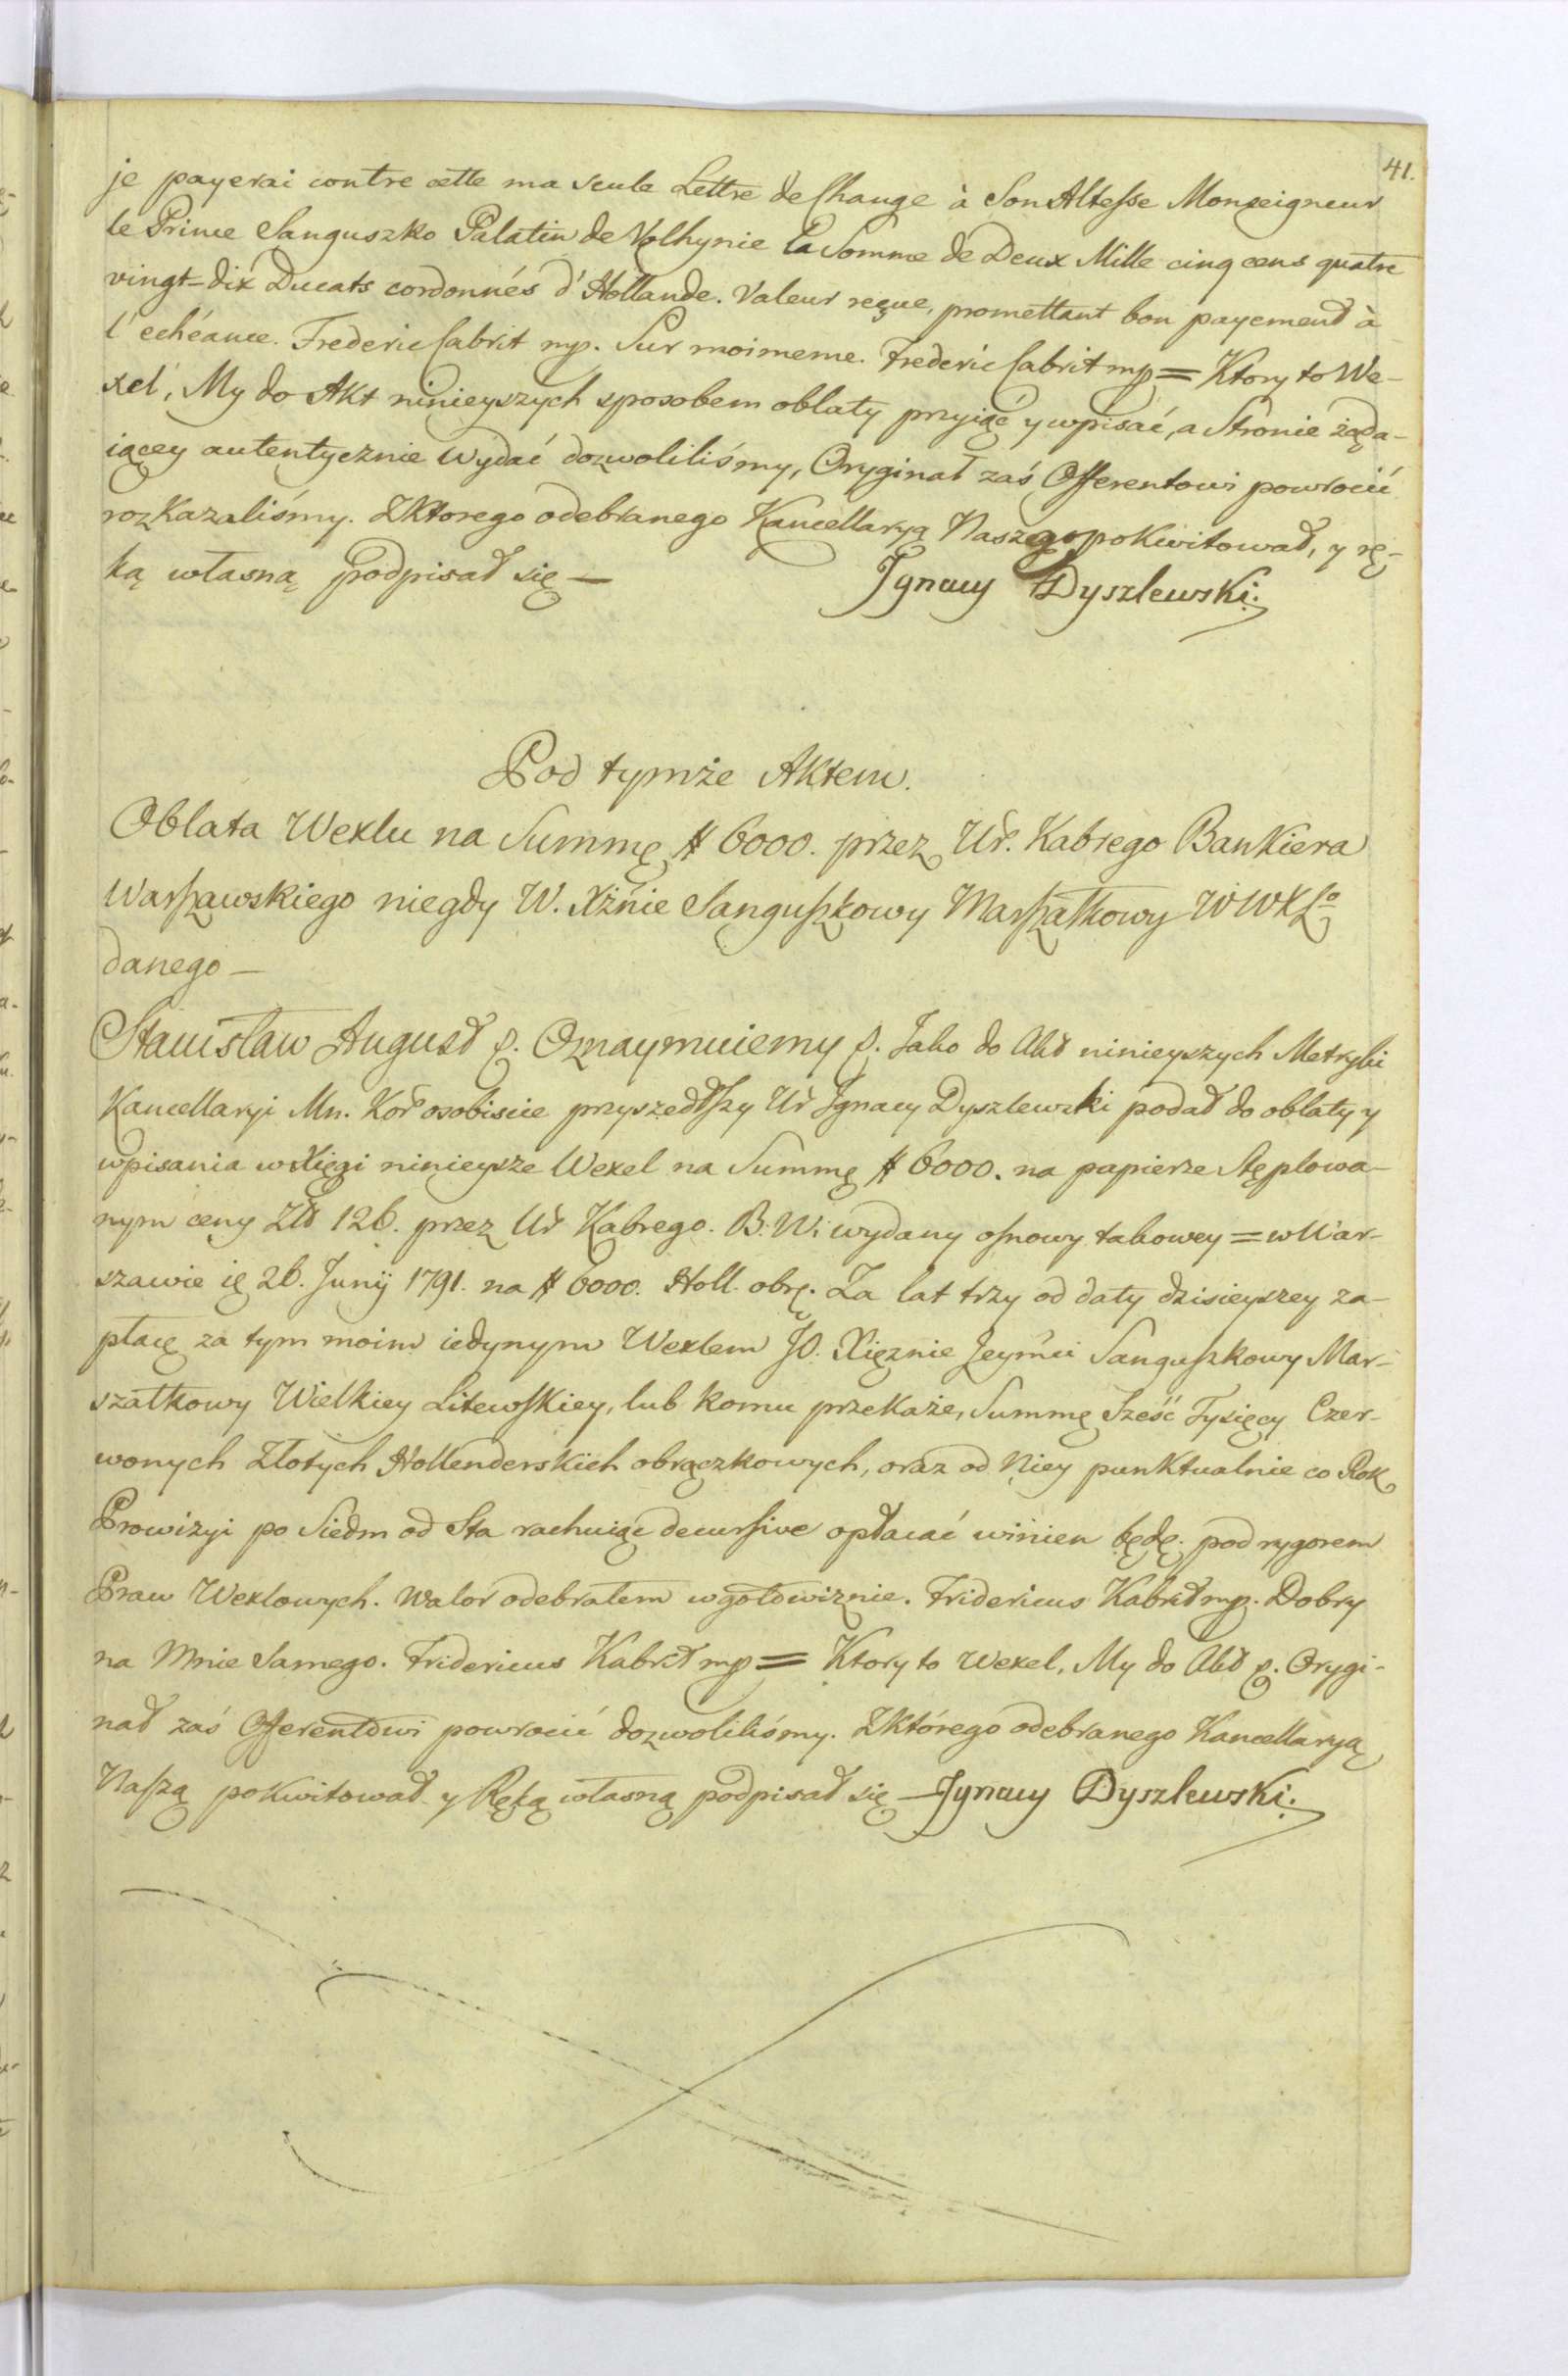 41.
je payerai contre cette ma seule Lettre de Change à Son Altesse Monseigneur
le Prince Sanguszko Palatin de Volhynie la Somme de Deux Mille cinq cens quatre
vingt-dix Ducats cordonnés d'Hollande. Valeur reçue, promettant bon payement à
l'echéance. Frederic Cabrit mp. Sur moimeme. Frederic Cabrit mp = Ktory to We-
xel, My do Akt ninieyszych sposobem oblaty przyiąć y wpisać, a Stronie żąda-
iącey autentycznie wydać dozwoliliśmy, Oryginał zaś Offerentowi powrocić
rozkazaliśmy. Z Ktorego odebranego Kancellaryą Naszą pokwitował, y rę-
ką własną podpisał się — Ignacy Dyszlewski.
Pod tymże Aktem.
Oblata Wexlu na Summę # 6000. przez Ur. Kabrego Bankiera
Warszawskiego niegdy W. Xżnie Sanguszkowy Marszałkowy W W X Lo
danego —
Stanisław August p. Oznaymuiemy p. Jako do Akt ninieyszych Metryki
Kancellaryi Mn. Kor osobiscie przyszedłszy Ur Ignacy Dyszlewski podał do oblaty y
wpisania w Xięgi ninieysze Wexel na Summę # 6000. na papierze Stęplowa-
nym ceny Zł 126. przez Ur Kabrego. B. W. wydany osnowy takowey = w War-
szawie ię 26. Junij 1791. na # 6000. Holl. obrę. Za lat trzy od daty dzisieyszey za-
płacę za tym moim iedynym Wexlem JO. Xięznie Jeymci Sanguszkowy Mar-
szałkowy Wielkiey Litewskiey, lub komu przekaże, Summę Sześć Tysięcy Czer-
wonych Złotych Hollenderskich obrączkowych, oraz od Niey punktualnie co Rok
Prowizyi po Siedm od Sta rachuiąc decursive opłacać winien będę. pod rygorem
Praw Wexlowych. Walor odebrałem w gotowiznie. Fridericus Kabrit mp. Dobry
na Mnie Samego. Fridericus Kabrit mp = Ktory to Wexel, My do Akt p. Orygi-
nał zaś Offerentowi powrocić dozwoliliśmy. Z którego odebranego Kancellaryą
Naszą pokwitował y Ręką własną podpisał się — Ignacy Dyszlewski.